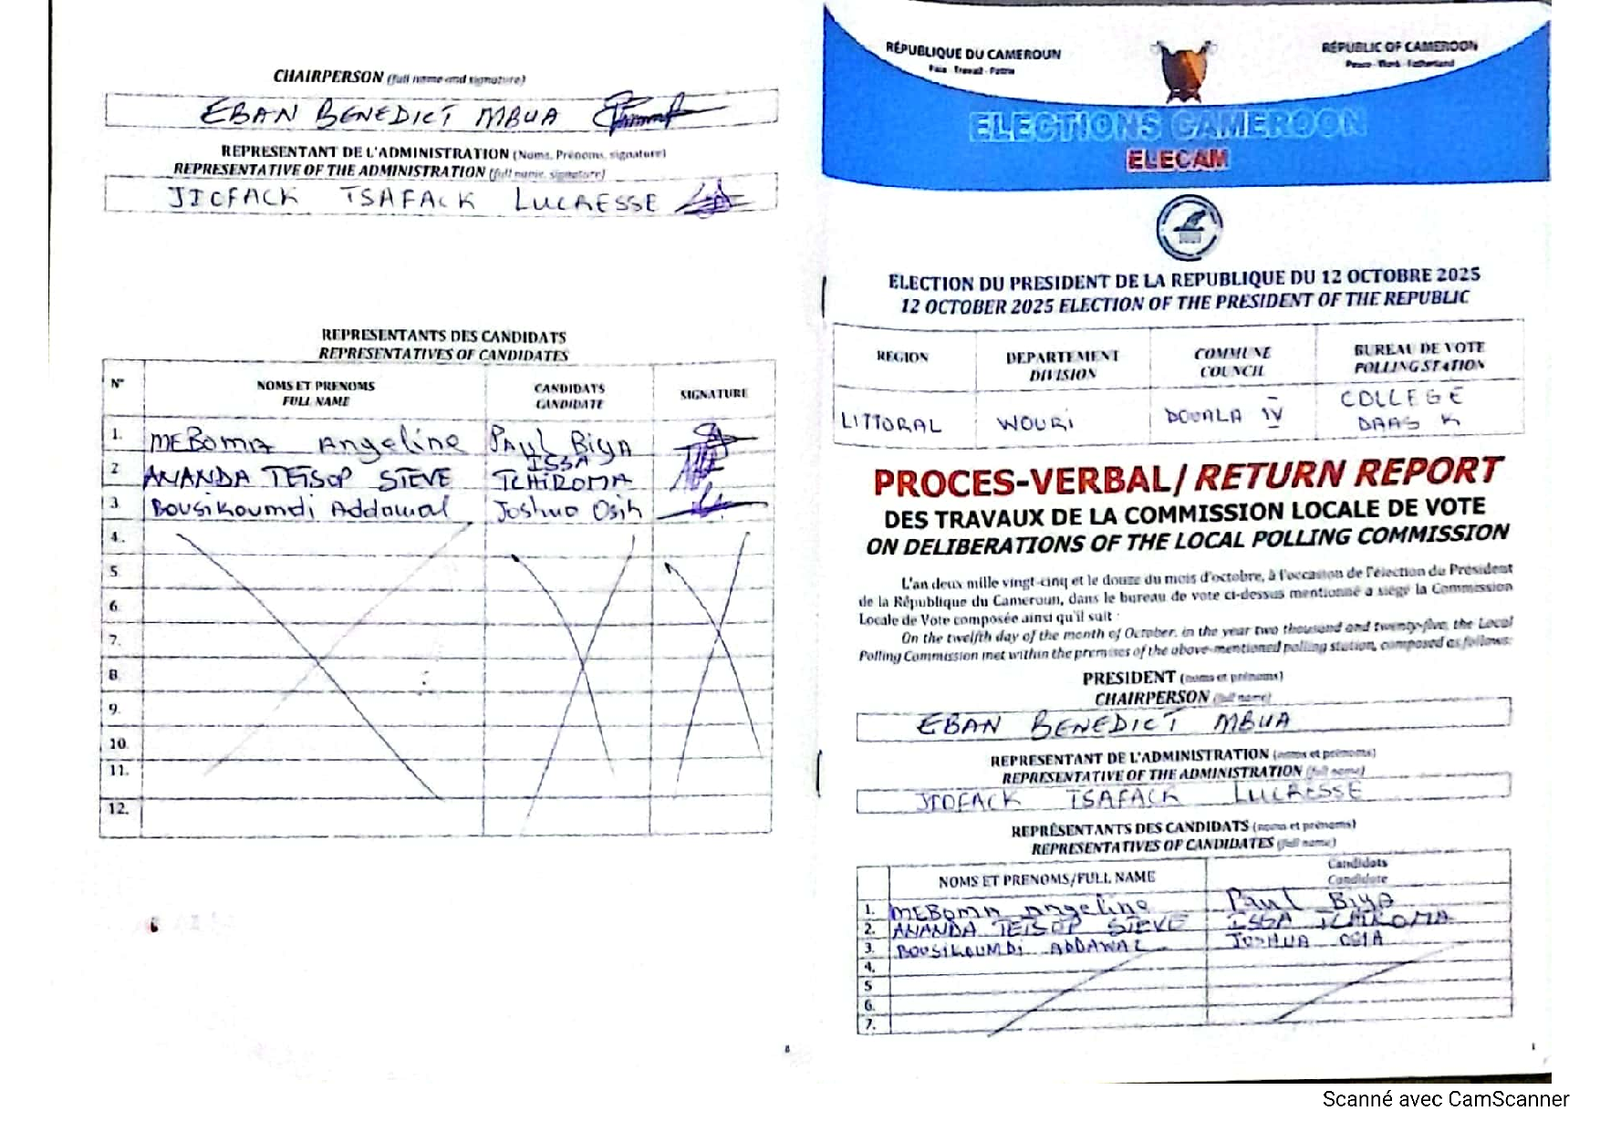 CHAIRPERSON (full name and signature)
EBAN BENEDICT MBUA
REPRESENTANT DE L'ADMINISTRATION (Noms, Prénoms, signature)
REPRESENTATIVE OF THE ADMINISTRATION (full name, signature)
JIOFACK TSAFACK LUCRESSE
REPRESENTANTS DES CANDIDATS
REPRESENTATIVES OF CANDIDATES
N° NOMS ET PRENOMS FULL NAME CANDIDATS CANDIDATE SIGNATURE
1. MEBOMA Angeline PAUL BIYA
2 ANANDA TEISOP STEVE ISSA TCHIROMA
3. Bousikoumdi Addawal Joshua Osih
4.
5.
6.
7.
8.
9.
10.
11.
12.
8
RÉPUBLIQUE DU CAMEROUN
Paix - Travail - Patrie
REPUBLIC OF CAMEROON
Peace - Work - Fatherland
ELECTIONS CAMEROON
ELECAM
ELECTION DU PRESIDENT DE LA REPUBLIQUE DU 12 OCTOBRE 2025
12 OCTOBER 2025 ELECTION OF THE PRESIDENT OF THE REPUBLIC
REGION DEPARTEMENT DIVISION COMMUNE COUNCIL BUREAU DE VOTE POLLING STATION
LITTORAL WOURI DOUALA IV COLLEGE DAAS K
PROCES-VERBAL/ RETURN REPORT
DES TRAVAUX DE LA COMMISSION LOCALE DE VOTE
ON DELIBERATIONS OF THE LOCAL POLLING COMMISSION
L'an deux mille vingt-cinq et le douze du mois d'octobre, à l'occasion de l'élection du Président
de la République du Cameroun, dans le bureau de vote ci-dessus mentionné a siégé la Commission
Locale de Vote composée ainsi qu'il suit :
On the twelfth day of the month of October, in the year two thousand and twenty-five, the Local
Polling Commission met within the premises of the above-mentioned polling station, composed as follows:
PRESIDENT (noms et prénoms)
CHAIRPERSON (full name)
EBAN BENEDICT MBUA
REPRESENTANT DE L'ADMINISTRATION (noms et prénoms)
REPRESENTATIVE OF THE ADMINISTRATION (full name)
JIOFACK TSAFACK LUCRESSE
REPRÉSENTANTS DES CANDIDATS (noms et prénoms)
REPRESENTATIVES OF CANDIDATES (full name)
NOMS ET PRENOMS/FULL NAME Candidats Candidate
1. MEBOMA Angeline Paul Biya
2. ANANDA TEISOP STEVE ISSA TCHIROMA
3. BOUSIKOUMDI ADDAWAL JOSHUA OSIH
4.
5
6.
7.
1
Scanné avec CamScanner